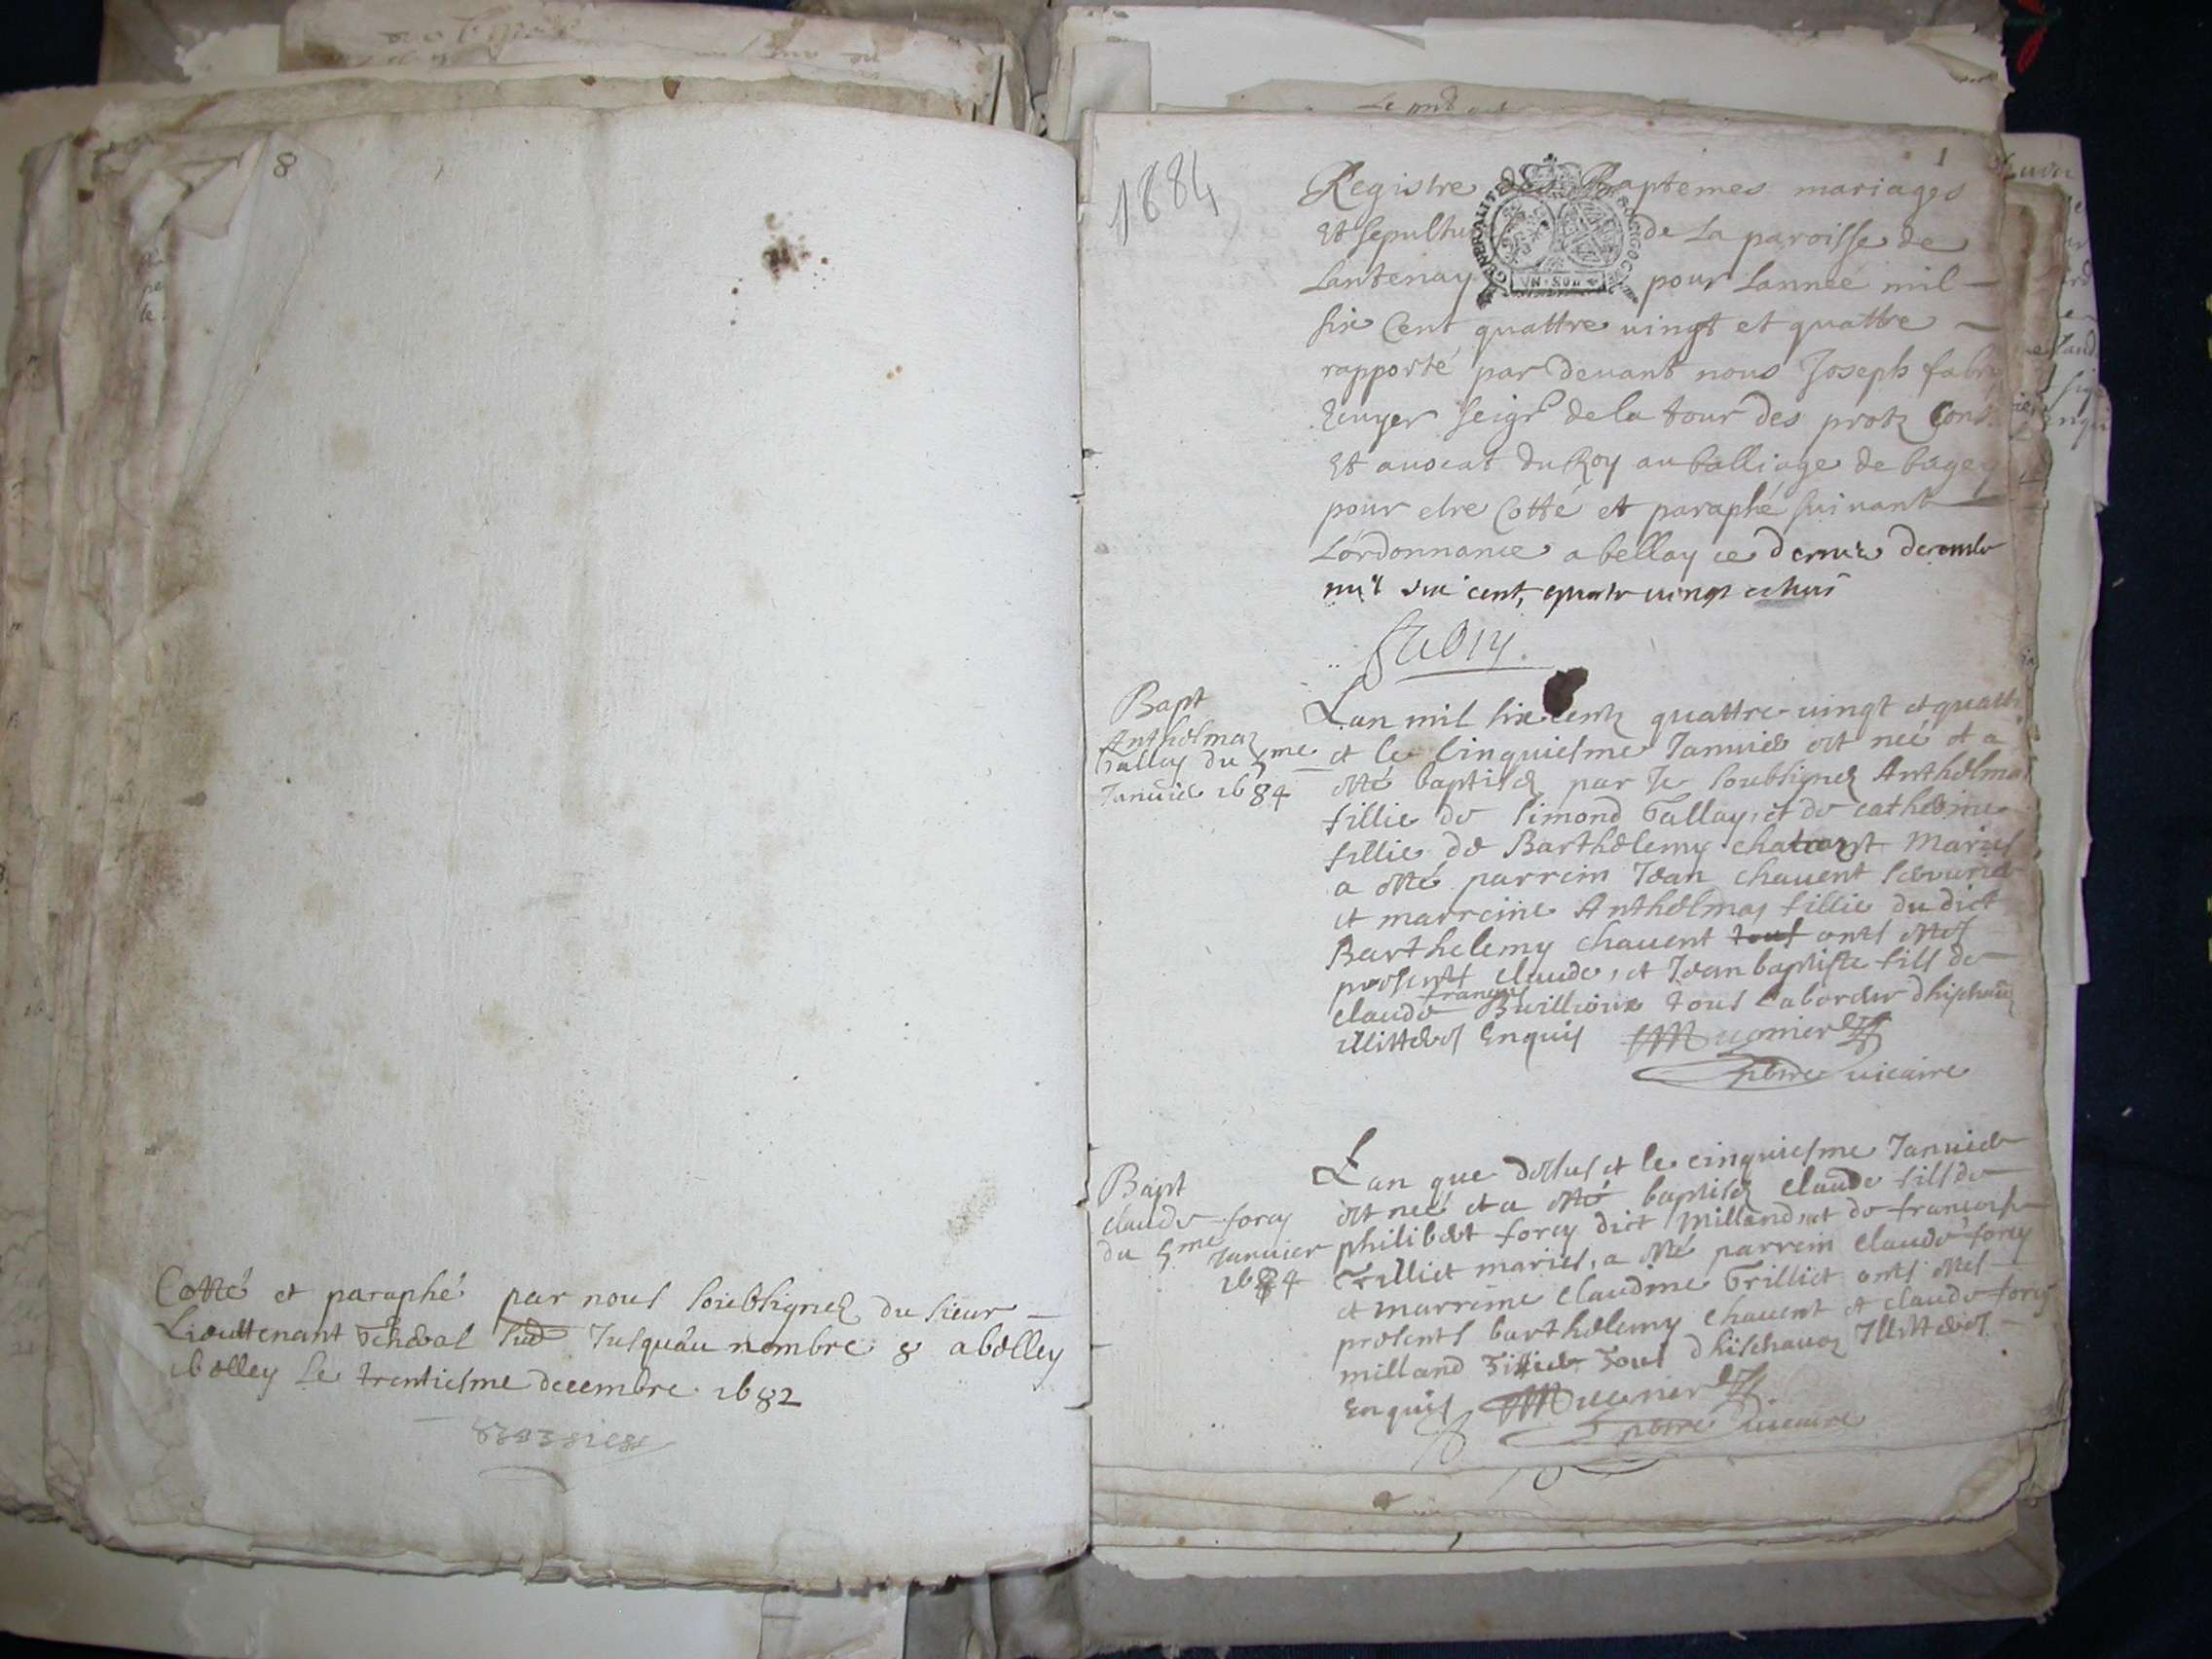 8
Cotté et paraphé par nous soubsignez du sieur
Lieuttenant General Jusqu'au nombre 8 a belley
a belley le trentiesme decembre 1682
1684
1
Registre des Baptemes mariages
Et sepultu de La paroisse de
Lantenay pour Lannee mil
six Cent quattre vingt et quattre
rapporté par devant nous Joseph fabry
Ecuyer seigr de la tour des protz Cons
Et avocat du Roy au balliage de bugey
pour etre Cotté et paraphé suivant
Lordonnance a bellay ce dernie decembr
mil six cent, quatr vingt
GENERALITE DE BOURGOGNE
VN·SOL
fabry.
Bapt
Anthelmaz
Gallay du 5me
Januier 1684
Lan mil six centz quattre vingt et quattr
et le Cinquiesme Januier est neé et a
esté baptisez par Je soubsignez Anthelma
fillie de Simond Gallay, et de catherine
fillie de Barthelemy chavant Mariés
a esté parrein Jean chauent
et marreine Anthelmaz fillie du dict
Barthelemy chauent tous onts estes
presents claude, et Jean baptiste fils de
claude francois Buillioux tous Laborder
Illitteres Enquis Mugnier
pbtre vicaire
Bapt
claude foray
du 5me Januier
1684
Lan que dessus et le cinquiesme Januier
est neé et a esté baptisez claude fils de
philibert foray dict Milland, et de francoise
Trilliet maries, a esté parrein claude foray
et marreine claudine Trilliet onts estes
presents barthelemy chauent et claude foray
milland tous Illitteres
Enquis Mugnier
pbtre vicaire